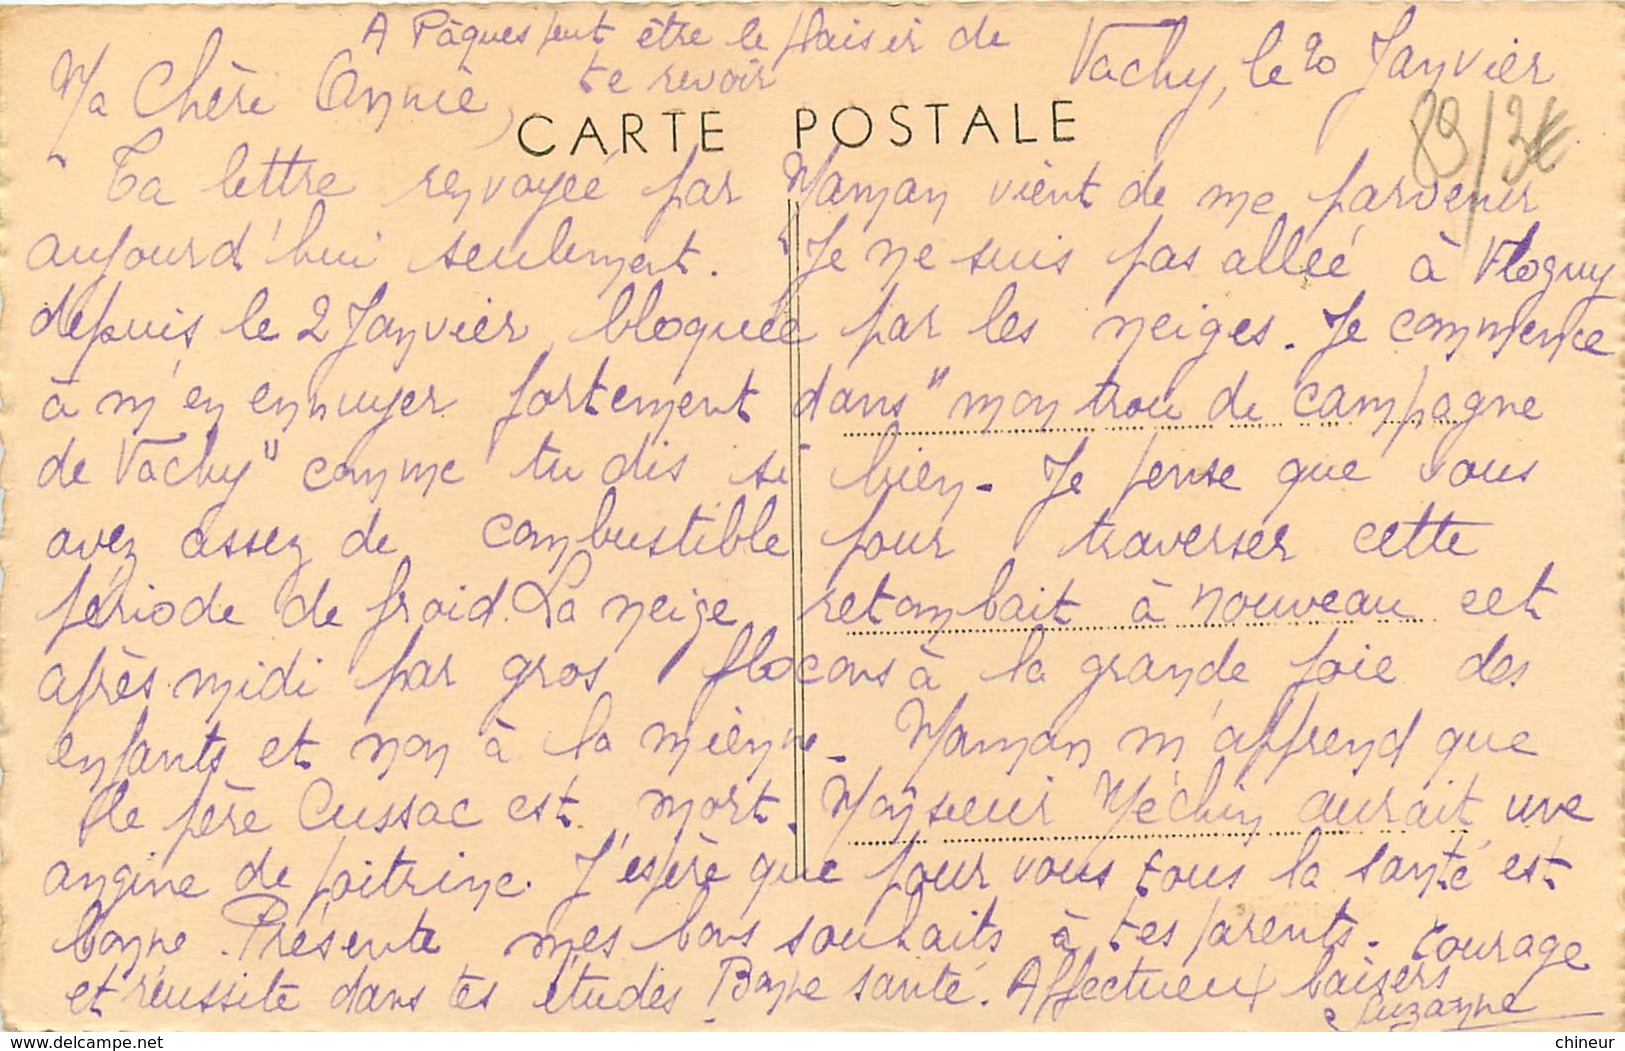 A Pâques peut être le plaisir de
te revoir
Vachy, le 20 Janvier
Ma Chère Annie,
CARTE POSTALE
89/3€
Ta lettre renvoyée par Maman vient de me parvenir
aujourd'hui seulement. Je ne suis pas allée à Flogny
depuis le 2 Janvier, bloquée par les neiges. Je commence
à m'en ennuyer fortement dans "mon trou de campagne
de Vachy" comme tu dis si bien. Je pense que vous
avez assez de combustible pour traverser cette
période de froid. La neige retombait à nouveau cet
après-midi par gros flocons à la grande joie des
enfants et non à la mienne. Maman m'apprend que
le père Cussac est mort. Monsieur Méchin aurait une
angine de poitrine. J'espère que pour vous tous la santé est
bonne. Présente mes bons souhaits à tes parents. Courage
et réussite dans tes études. Bonne santé. Affectueux baisers
Suzanne
chineur